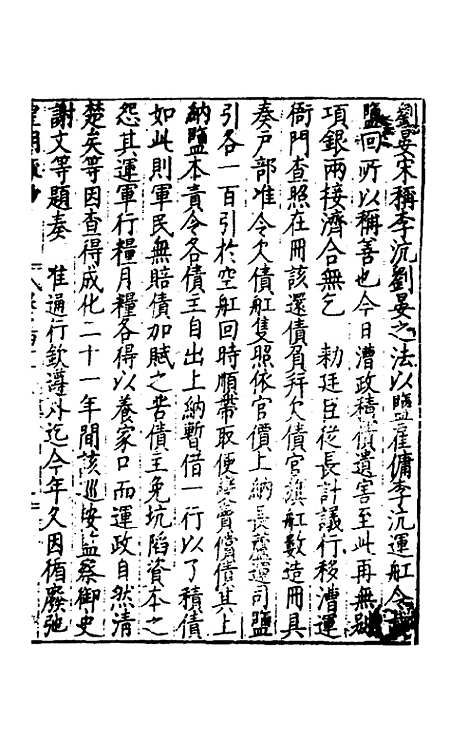 劉晏宋稱李沆劉晏之法以鹽雇傭李沆運舡令
鹽回所以稱善也今日漕政積債遺害至此再無別
項銀兩接濟合無乞　勑廷臣從長計議行移漕運
衙門查照在冊該還債負并欠債官旗舡數造冊具
奏戶部准令欠債舡隻照依官價上納長蘆運司鹽
引各一百引於空舡回時順帶取便變賣償債其上
納鹽本責令各債主自出上納暫借一行以了積債
如此則軍民無賠債加賦之苦債主免坑陷資本之
怨其運軍行糧月糧各得以養家口而運政自然清
楚矣等因查得成化二十一年間該巡按監察御史
謝文等題奏　准通行欽遵外迄今年久因循廢弛